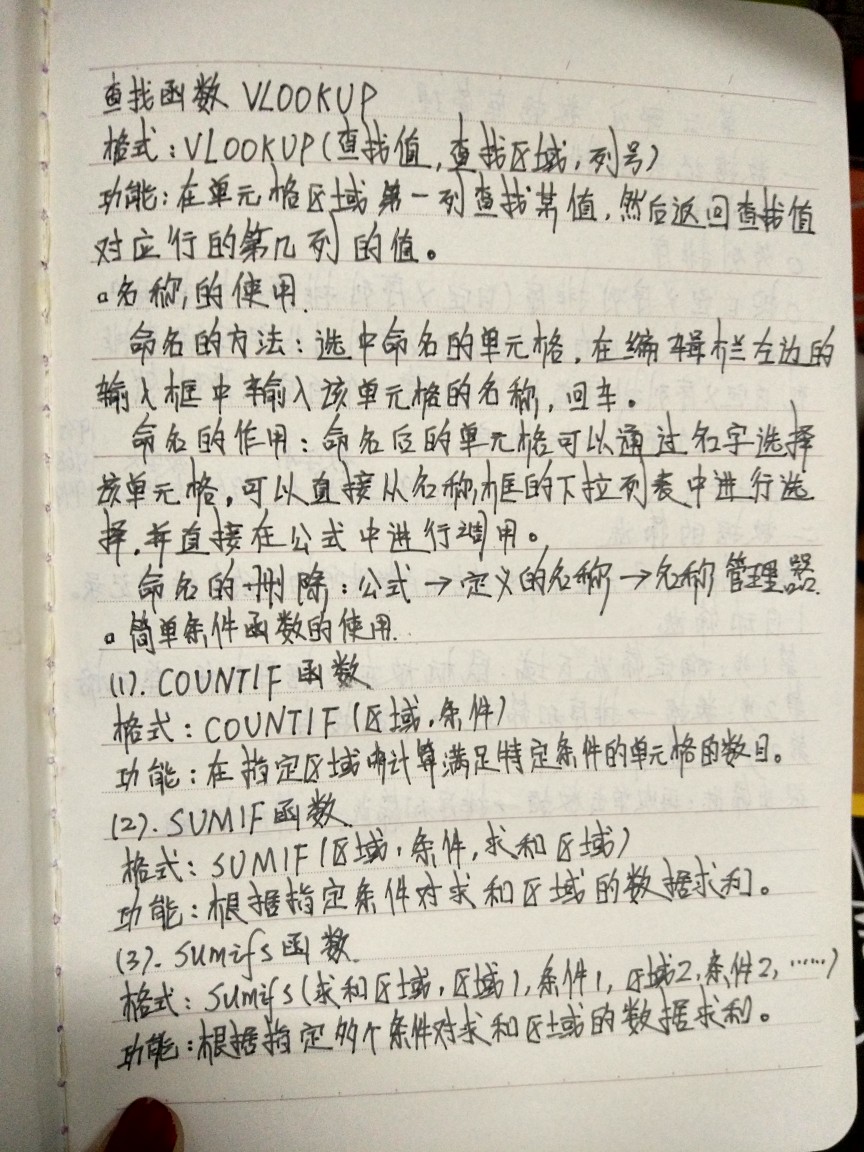 查找函数 VLOOKUP
格式：VLOOKUP(查找值，查找区域，列号)
功能：在单元格区域第一列查找某值，然后返回查找值
对应行的第几列的值。
名称的使用.
命名的方法：选中命名的单元格，在编辑栏左边的
输入框中输入该单元格的名称，回车。
命名的作用：命名后的单元格可以通过名字选择
该单元格，可以直接从名称框的下拉列表中进行选
择，并直接在公式中进行调用。
命名的删除：公式→定义的名称→名称管理器.
简单条件函数的使用.
(1). COUNTIF 函数
格式：COUNTIF(区域，条件)
功能：在指定区域内计算满足特定条件的单元格的数目。
(2). SUMIF 函数.
格式：SUMIF(区域，条件，求和区域)
功能：根据指定条件对求和区域的数据求和。
(3). Sumifs 函数.
格式：Sumifs(求和区域，区域1，条件1，区域2，条件2，……)
功能：根据指定多个条件对求和区域的数据求和。